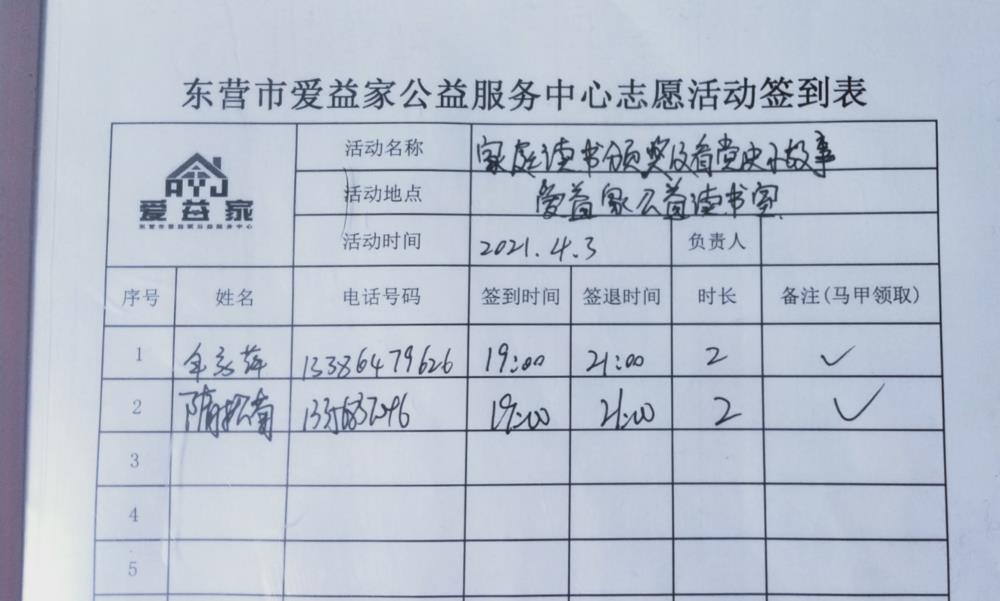 东营市爱益家公益服务中心志愿活动签到表
AYJ
爱益家
东营市爱益家公益服务中心
活动名称 家庭读书颁奖及看党史小故事
活动地点 爱益家公益读书室
活动时间 2021.4.3 负责人
序号 姓名 电话号码 签到时间 签退时间 时长 备注(马甲领取)
1 13386479626 19:00 21:00 2 ✓
2 隋松菊 19:00 21:00 2 ✓
3
4
5